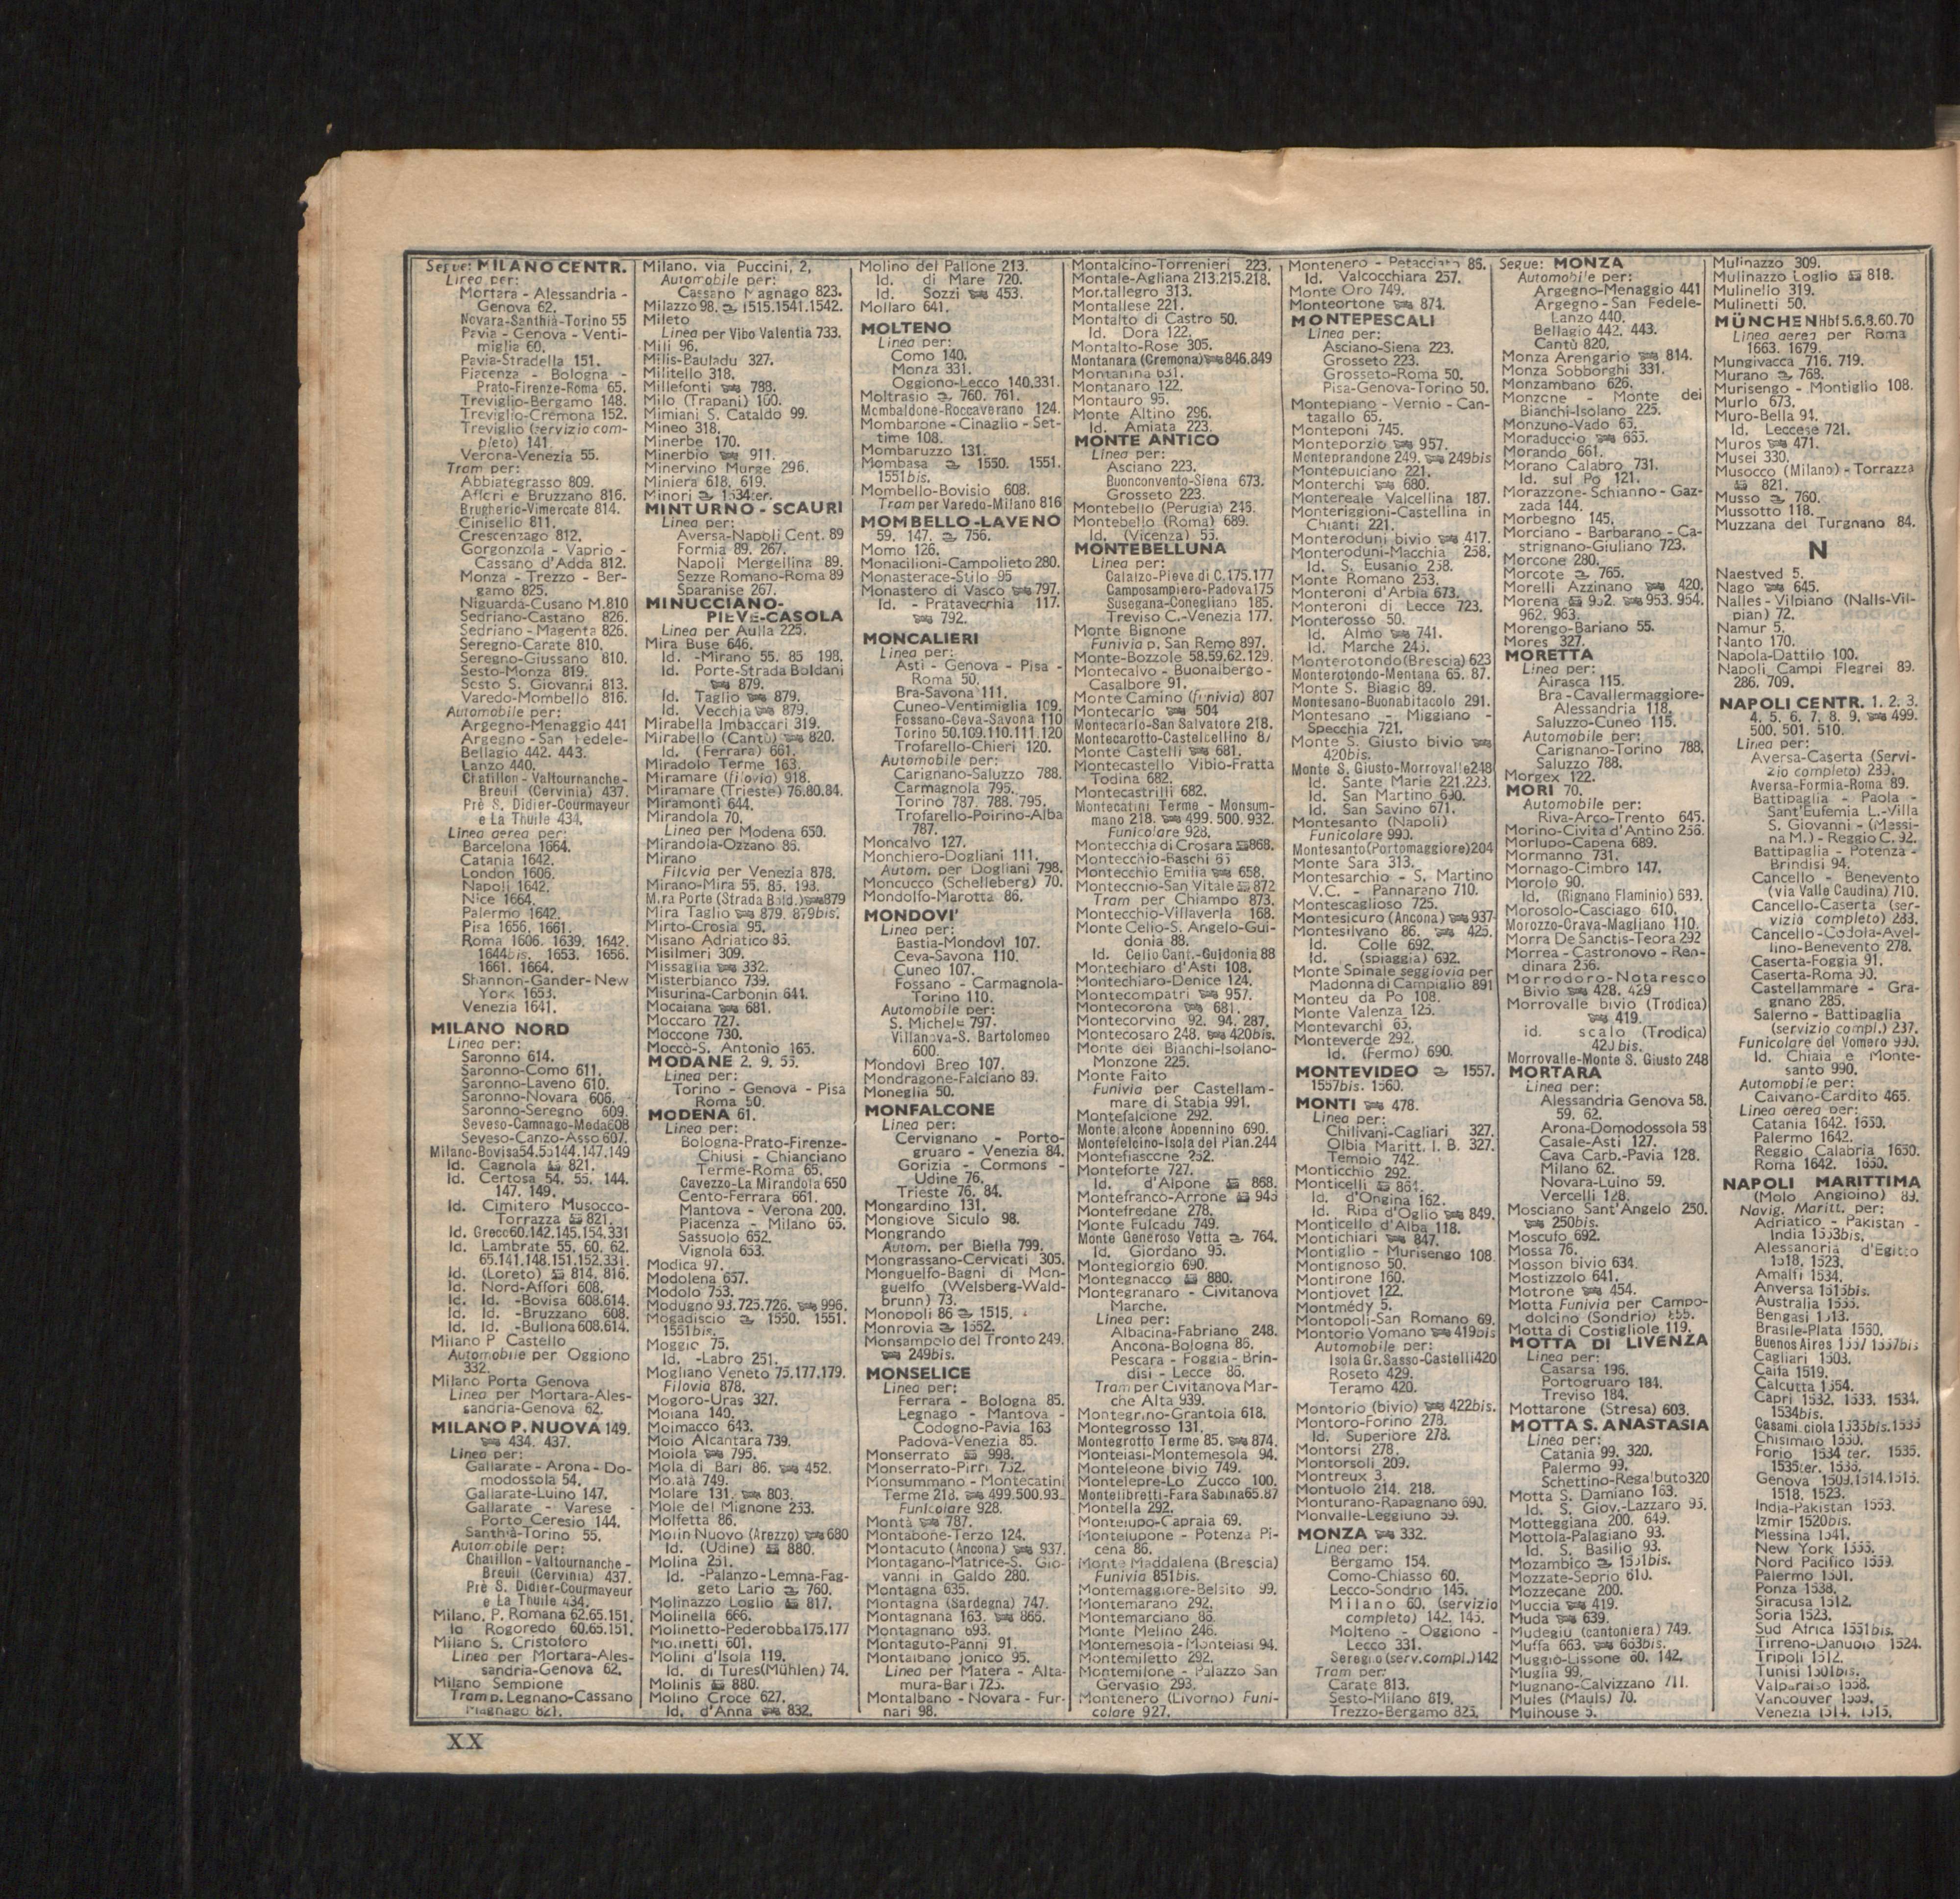 Segue: MILANO CENTR.
Linea per:
Mortara - Alessandria -
Genova 62.
Novara-Santhià-Torino 55
Pavia - Genova - Venti-
miglia 60.
Pavia-Stradella 151.
Piacenza - Bologna -
Prato-Firenze-Roma 65.
Treviglio-Bergamo 148.
Treviglio-Cremona 152.
Treviglio (servizio com-
pleto) 141.
Verona-Venezia 55.
Tram per:
Abbiategrasso 809.
Affori e Bruzzano 816.
Brugherio-Vimercate 814.
Cinisello 811.
Crescenzago 812.
Gorgonzola - Vaprio -
Cassano d'Adda 812.
Monza - Trezzo - Ber-
gamo 825.
Niguarda-Cusano M.810
Sedriano-Castano 826.
Sedriano - Magenta 826.
Seregno-Carate 810.
Seregno-Giussano 810.
Sesto-Monza 819.
Sesto S. Giovanni 813.
Varedo-Mombello 816.
Automobile per:
Argegno-Menaggio 441
Argegno - San Fedele-
Bellagio 442. 443.
Lanzo 440.
Chatillon - Valtournanche -
Breuil (Cervinia) 437.
Prè S. Didier-Courmayeur
e La Thuile 434.
Linea aerea per:
Barcelona 1664.
Catania 1642.
London 1606.
Napoli 1642.
Nice 1664.
Palermo 1642.
Pisa 1656. 1661.
Roma 1606. 1639. 1642.
1644bis. 1653. 1656.
1661. 1664.
Shannon-Gander-New
York 1653.
Venezia 1641.
MILANO NORD
Linea per:
Saronno 614.
Saronno-Como 611.
Saronno-Laveno 610.
Saronno-Novara 606.
Saronno-Seregno 609.
Seveso-Camnago-Meda608
Seveso-Canzo-Asso 607.
Milano-Bovisa54.55144.147.149
Id. Cagnola 821.
Id. Certosa 54. 55. 144.
147. 149.
Id. Cimitero Musocco-
Torrazza 821.
Id. Greco60.142.145.154.331
Id. Lambrate 55. 60. 62.
65.141.148.151.152.331.
Id. (Loreto) 814. 816.
Id. Nord-Affori 608.
Id. Id. -Bovisa 608.614.
Id. Id. -Bruzzano 608.
Id. Id. -Bullona 608.614.
Milano P. Castello
Automobile per Oggiono
332.
Milano Porta Genova
Linea per Mortara-Ales-
sandria-Genova 62.
MILANO P. NUOVA 149.
434. 437.
Linea per:
Gallarate - Arona - Do-
modossola 54.
Gallarate-Luino 147.
Gallarate - Varese -
Porto Ceresio 144.
Santhià-Torino 55.
Automobile per:
Chatillon - Valtournanche -
Breuil (Cervinia) 437.
Prè S. Didier-Courmayeur
e La Thuile 434.
Milano. P. Romana 62.65.151.
Id Rogoredo 60.65.151.
Milano S. Cristoforo
Linea per Mortara-Ales-
sandria-Genova 62.
Milano Sempione
Tram p. Legnano-Cassano
Magnago 821.
Milano. via Puccini, 2,
Automobile per:
Cassano Magnago 823.
Milazzo 98. 1515.1541.1542.
Mileto
Linea per Vibo Valentia 733.
Mili 96.
Milis-Pauladu 327.
Militello 318.
Millefonti 788.
Milo (Trapani) 100.
Mimiani S. Cataldo 99.
Mineo 318.
Minerbe 170.
Minerbio 911.
Minervino Murge 296.
Miniera 618. 619.
Minori 1534ter.
MINTURNO - SCAURI
Linea per:
Aversa-Napoli Cent. 89
Formia 89. 267.
Napoli Mergellina 89.
Sezze Romano-Roma 89
Sparanise 267.
MINUCCIANO-
PIEVE-CASOLA
Linea per Aulla 225.
Mira Buse 646.
Id. -Mirano 55. 85 198.
Id. Porte-Strada Boldani
879.
Id. Taglio 879.
Id. Vecchia 879.
Mirabella Imbaccari 319.
Mirabello (Cantù) 820.
Id. (Ferrara) 661.
Miradolo Terme 163.
Miramare (filovia) 918.
Miramare (Trieste) 76.80.84.
Miramonti 644.
Mirandola 70.
Linea per Modena 650.
Mirandola-Ozzano 85.
Mirano
Filovia per Venezia 878.
Mirano-Mira 55. 85. 198.
Mira Porte (Strada Bold.) 879
Mira Taglio 879. 879bis.
Mirto-Crosia 95.
Misano Adriatico 85.
Misilmeri 309.
Missaglia 332.
Misterbianco 739.
Misurina-Carbonin 644.
Mocaiana 681.
Moccaro 727.
Moccone 730.
Moccò-S. Antonio 165.
MODANE 2. 9. 55.
Linea per:
Torino - Genova - Pisa
Roma 50.
MODENA 61.
Linea per:
Bologna-Prato-Firenze-
Chiusi - Chianciano
Terme-Roma 65.
Cavezzo-La Mirandola 650
Cento-Ferrara 661.
Mantova - Verona 200.
Piacenza - Milano 65.
Sassuolo 652.
Vignola 653.
Modica 97.
Modolena 657.
Modolo 753.
Modugno 93.725.726. 996.
Mogadiscio 1550. 1551.
1551bis.
Moggio 75.
Id. -Labro 251.
Mogliano Veneto 75.177.179.
Filovia 878.
Mogoro-Uras 327.
Moiana 140.
Moimacco 643.
Moio Alcantara 739.
Moiola 795.
Mola di Bari 86. 452.
Molalà 749.
Molare 131. 803.
Mole del Mignone 253.
Molfetta 86.
Molin Nuovo (Arezzo) 680
Id. (Udine) 880.
Molina 251.
Id. -Palanzo-Lemna-Fag-
geto Lario 760.
Molinazzo Loglio 817.
Molinella 666.
Molinetto-Pederobba175.177
Molinetti 601.
Molini d'Isola 119.
Id. di Tures(Mühlen) 74.
Molinis 880.
Molino Croce 627.
Id. d'Anna 832.
Molino del Pallone 213.
Id. di Mare 720.
Id. Sozzi 453.
Mollaro 641.
MOLTENO
Linea per:
Como 140.
Monza 331.
Oggiono-Lecco 140.331.
Moltrasio 760. 761.
Mombaldone-Roccaverano 124.
Mombarone - Cinaglio - Set-
time 108.
Mombaruzzo 131.
Mombasa 1550. 1551.
1551bis.
Mombello-Bovisio 608.
Tram per Varedo-Milano 816
MOMBELLO-LAVENO
59. 147. 756.
Momo 126.
Monacilioni-Campolieto 280.
Monasterace-Stilo 95
Monastero di Vasco 797.
Id. - Pratavecchia 117.
792.
MONCALIERI
Linea per:
Asti - Genova - Pisa -
Roma 50.
Bra-Savona 111.
Cuneo-Ventimiglia 109.
Fossano-Ceva-Savona 110
Torino 50.109.110.111.120
Trofarello-Chieri 120.
Automobile per:
Carignano-Saluzzo 788.
Carmagnola 795.
Torino 787. 788. 795.
Trofarello-Poirino-Alba
787.
Moncalvo 127.
Monchiero-Dogliani 111.
Autom. per Dogliani 798.
Moncucco (Schelleberg) 70.
Mondolfo-Marotta 86.
MONDOVI'
Linea per:
Bastia-Mondovì 107.
Ceva-Savona 110.
Cuneo 107.
Fossano - Carmagnola-
Torino 110.
Automobile per:
S. Michele 797.
Villanova-S. Bartolomeo
600.
Mondovì Breo 107.
Mondragone-Falciano 89.
Moneglia 50.
MONFALCONE
Linea per:
Cervignano - Porto-
gruaro - Venezia 84.
Gorizia - Cormons -
Udine 76.
Trieste 76. 84.
Mongardino 131.
Mongiove Siculo 98.
Mongrando
Autom. per Biella 799.
Mongrassano-Cervicati 305.
Monguelfo-Bagni di Mon-
guelfo (Welsberg-Wald-
brunn) 73.
Monopoli 86 1515.
Monrovia 1552.
Monsampolo del Tronto 249.
249bis.
MONSELICE
Linea per:
Ferrara - Bologna 85.
Legnago - Mantova -
Codogno-Pavia 163
Padova-Venezia 85.
Monserrato 998.
Monserrato-Pirri 752.
Monsummano - Montecatini
Terme 218. 499.500.93.
Funicolare 928.
Montà 787.
Montabone-Terzo 124.
Montacuto (Ancona) 937.
Montagano-Matrice-S. Gio-
vanni in Galdo 280.
Montagna 635.
Montagna (Sardegna) 747.
Montagnana 163. 866.
Montagnano 693.
Montaguto-Panni 91.
Montalbano jonico 95.
Linea per Matera - Alta-
mura-Bari 725.
Montalbano - Novara - Fur-
nari 98.
Montalcino-Torrenieri 223.
Montale-Agliana 213.215.218.
Montallegro 313.
Montallese 221.
Montalto di Castro 50.
Id. Dora 122.
Montalto-Rose 305.
Montanara (Cremona) 846.849
Montanina 631.
Montanaro 122.
Montauro 95.
Monte Altino 296.
Id. Amiata 223.
MONTE ANTICO
Linea per:
Asciano 223.
Buonconvento-Siena 673.
Grosseto 223.
Montebello (Perugia) 246.
Montebello (Roma) 689.
Id. (Vicenza) 55.
MONTEBELLUNA
Linea per:
Calalzo-Pieve di C.175.177
Camposampiero-Padova175
Susegana-Conegliano 185.
Treviso C.-Venezia 177.
Monte Bignone
Funivia p. San Remo 897.
Monte-Bozzole 58.59.62.129.
Montecalvo - Buonalbergo -
Casalbore 91.
Monte Camino (funivia) 807
Montecarlo 504
Montecarlo-San Salvatore 218.
Montecarotto-Castelcellino 87
Monte Castelli 681.
Montecastello Vibio-Fratta
Todina 682.
Montecastrilli 682.
Montecatini Terme - Monsum-
mano 218. 499. 500. 932.
Funicolare 928.
Montecchia di Crosara 868.
Montecchio-Baschi 65
Montecchio Emilia 658.
Montecchio-San Vitale 872
Tram per Chiampo 873.
Montecchio-Villaverla 168.
Monte Celio-S. Angelo-Gui-
donia 88.
Id. Celio Cant.-Guidonia 88
Montechiaro d'Asti 108.
Montechiaro-Denice 124.
Montecompatri 957.
Montecorona 681.
Montecorvino 92. 94. 287.
Montecosaro 248. 420bis.
Monte dei Bianchi-Isolano-
Monzone 225.
Monte Faito
Funivia per Castellam-
mare di Stabia 991.
Montefalcione 292.
Montefalcone Appennino 690.
Montefelcino-Isola del Pian.244
Montefiascone 252.
Monteforte 727.
Id. d'Alpone 868.
Montefranco-Arrone 943
Montefredane 278.
Monte Fulcadu 749.
Monte Generoso Vetta 764.
Id. Giordano 95.
Montegiorgio 690.
Montegnacco 880.
Montegranaro - Civitanova
Marche.
Linea per:
Albacina-Fabriano 248.
Ancona-Bologna 86.
Pescara - Foggia - Brin-
disi - Lecce 86.
Tram per Civitanova Mar-
che Alta 939.
Montegrino-Grantola 618.
Montegrosso 131.
Montegrotto Terme 85. 874.
Monteiasi-Montemesola 94.
Monteleone bivio 749.
Montelepre-Lo Zucco 100.
Montelibretti-Fara Sabina65.87
Montella 292.
Montelupo-Capraia 69.
Montelupone - Potenza Pi-
cena 86.
Monte Maddalena (Brescia)
Funivia 851bis.
Montemaggiore-Belsito 99.
Montemarano 292.
Montemarciano 86.
Monte Melino 246.
Montemesola-Monteiasi 94.
Montemiletto 292.
Montemilone - Palazzo San
Gervasio 293.
Montenero (Livorno) Funi-
colare 927.
Montenero - Petacciato 86.
Id. Valcocchiara 257.
Monte Oro 749.
Monteortone 874.
MONTEPESCALI
Linea per:
Asciano-Siena 223.
Grosseto 223.
Grosseto-Roma 50.
Pisa-Genova-Torino 50.
Montepiano - Vernio - Can-
tagallo 65.
Monteponi 745.
Monteporzio 957.
Monteprandone 249. 249bis
Montepulciano 221.
Monterchi 680.
Montereale Valcellina 187.
Monteriggioni-Castellina in
Chianti 221.
Monteroduni bivio 417.
Monteroduni-Macchia 258.
Id. S. Eusanio 258.
Monte Romano 253.
Monteroni d'Arbia 673.
Monteroni di Lecce 723.
Monterosso 50.
Id. Almo 741.
Id. Marche 245.
Monterotondo(Brescia) 623
Monterotondo-Mentana 65. 87.
Monte S. Biagio 89.
Montesano-Buonabitacolo 291.
Montesano - Miggiano -
Specchia 721.
Monte S. Giusto bivio
420bis.
Monte S. Giusto-Morrovalle248
Id. Sante Marie 221.223.
Id. San Martino 690.
Id. San Savino 671.
Montesanto (Napoli)
Funicolare 990.
Montesanto(Portomaggiore)204
Monte Sara 313.
Montesarchio - S. Martino
V.C. - Pannarano 710.
Montescaglioso 725.
Montesicuro (Ancona) 937
Montesilvano 86. 425.
Id. Colle 692.
Id. (spiaggia) 692.
Monte Spinale seggiovia per
Madonna di Campiglio 891
Monteu da Po 108.
Monte Valenza 125.
Montevarchi 65.
Monteverde 292.
Id. (Fermo) 690.
MONTEVIDEO 1557.
1557bis. 1560.
MONTI 478.
Linea per:
Chilivani-Cagliari 327.
Olbia Maritt. I. B. 327.
Tempio 742.
Monticchio 292.
Monticelli 861.
Id. d'Ongina 162.
Id. Ripa d'Oglio 849.
Monticello d'Alba 118.
Montichiari 847.
Montiglio - Murisengo 108
Montignoso 50.
Montirone 160.
Montjovet 122.
Montmédy 5.
Montopoli-San Romano 69.
Montorio Vomano 419bis
Automobile per:
Isola Gr.Sasso-Castelli420
Roseto 429.
Teramo 420.
Montorio (bivio) 422bis.
Montoro-Forino 278.
Id. Superiore 278.
Montorsi 278.
Montorsoli 209.
Montreux 3.
Montuolo 214. 218.
Monturano-Rapagnano 690.
Monvalle-Leggiuno 59.
MONZA 332.
Linea per:
Bergamo 154.
Como-Chiasso 60.
Lecco-Sondrio 145.
Milano 60. (servizio
completo) 142. 145.
Molteno - Oggiono -
Lecco 331.
Seregno (serv.compl.)142
Tram per:
Carate 813.
Sesto-Milano 819.
Trezzo-Bergamo 825.
Segue: MONZA
Automobile per:
Argegno-Menaggio 441
Argegno - San Fedele-
Lanzo 440.
Bellagio 442. 443.
Cantù 820.
Monza Arengario 814.
Monza Sobborghi 331.
Monzambano 626.
Monzone - Monte dei
Bianchi-Isolano 225.
Monzuno-Vado 65.
Moraduccio 665.
Morando 661.
Morano Calabro 731.
Id. sul Po 121.
Morazzone-Schianno - Gaz-
zada 144.
Morbegno 145.
Morciano - Barbarano - Ca-
strignano-Giuliano 723.
Morcone 280.
Morcote 765.
Morelli Azzinano 420.
Morena 952. 953. 954.
962. 963.
Morengo-Bariano 55.
Mores 327.
MORETTA
Linea per:
Airasca 115.
Bra - Cavallermaggiore-
Alessandria 118.
Saluzzo-Cuneo 115.
Automobile per:
Carignano-Torino 788.
Saluzzo 788.
Morgex 122.
MORI 70.
Automobile per:
Riva-Arco-Trento 645.
Morino-Civita d'Antino 256.
Morlupo-Capena 689.
Mormanno 731.
Mornago-Cimbro 147.
Morolo 90.
Id. (Rignano Flaminio) 689.
Morosolo-Casciago 610.
Morozzo-Crava-Magliano 110.
Morra De Sanctis-Teora 292
Morrea - Castronovo - Ren-
dinara 256.
Morrodoro-Notaresco
Bivio 428. 429
Morrovalle bivio (Trodica)
419.
id. scalo (Trodica)
420bis.
Morrovalle-Monte S. Giusto 248
MORTARA
Linea per:
Alessandria Genova 58.
59. 62.
Arona-Domodossola 58
Casale-Asti 127.
Cava Carb.-Pavia 128.
Milano 62.
Novara-Luino 59.
Vercelli 128.
Mosciano Sant'Angelo 250.
250bis.
Moscufo 692.
Mossa 76.
Mosson bivio 634.
Mostizzolo 641.
Motrone 454.
Motta Funivia per Campo-
dolcino (Sondrio) 855.
Motta di Costigliole 119.
MOTTA DI LIVENZA
Linea per:
Casarsa 196.
Portogruaro 184.
Treviso 184.
Mottarone (Stresa) 603.
MOTTA S. ANASTASIA
Linea per:
Catania 99. 320.
Palermo 99.
Schettino-Regalbuto320
Motta S. Damiano 163.
Id. S. Giov.-Lazzaro 95.
Motteggiana 200. 649.
Mottola-Palagiano 93.
Id. S. Basilio 93.
Mozambico 1551bis.
Mozzate-Seprio 610.
Mozzecane 200.
Muccia 419.
Muda 639.
Mudegiu (cantoniera) 749.
Muffa 663. 663bis.
Muggiò-Lissone 60. 142.
Muglia 99.
Mugnano-Calvizzano 711.
Mules (Mauls) 70.
Mulhouse 5.
Mulinazzo 309.
Mulinazzo Loglio 818.
Mulinello 319.
Mulinetti 50.
MÜNCHEN Hbf 5.6.8.60.70
Linea aerea per Roma
1663. 1679.
Mungivacca 716. 719.
Murano 768.
Murisengo - Montiglio 108.
Murlo 673.
Muro-Bella 94.
Id. Leccese 721.
Muros 471.
Musei 330.
Musocco (Milano) - Torrazza
821.
Musso 760.
Mussotto 118.
Muzzana del Turgnano 84.
N
Naestved 5.
Nago 645.
Nalles - Vilpiano (Nalls-Vil-
pian) 72.
Namur 5.
Nanto 170.
Napola-Dattilo 100.
Napoli Campi Flegrei 89.
286. 709.
NAPOLI CENTR. 1. 2. 3.
4. 5. 6. 7. 8. 9. 499.
500. 501. 510.
Linea per:
Aversa-Caserta (Servi-
zio completo) 283.
Aversa-Formia-Roma 89.
Battipaglia - Paola -
Sant'Eufemia L.-Villa
S. Giovanni - (Messi-
na M.) - Reggio C. 92.
Battipaglia - Potenza -
Brindisi 94.
Cancello - Benevento
(via Valle Caudina) 710.
Cancello-Caserta (ser-
vizio completo) 283.
Cancello -Codola-Avel-
lino-Benevento 278.
Caserta-Foggia 91.
Caserta-Roma 90.
Castellammare - Gra-
gnano 285.
Salerno - Battipaglia
(servizio compl.) 237.
Funicolare del Vomero 990.
Id. Chiaia e Monte-
santo 990.
Automobile per:
Caivano-Cardito 465.
Linea aerea per:
Catania 1642. 1650.
Palermo 1642.
Reggio Calabria 1650.
Roma 1642. 1650.
NAPOLI MARITTIMA
(Molo Angioino) 89.
Navig. Maritt. per:
Adriatico - Pakistan -
India 1553bis.
Alessandria d'Egitto
1518. 1523.
Amalfi 1534.
Anversa 1515bis.
Australia 1555.
Bengasi 1513.
Brasile-Plata 1560.
Buenos Aires 1557 1557bis
Cagliari 1503.
Caifa 1519.
Calcutta 1554.
Capri 1532. 1533. 1534.
1534bis.
Casamicciola 1535bis.1535
Chisimaio 1550.
Forio 1534 ter. 1535.
1535ter. 1535.
Genova 1509.1514.1515.
1518. 1523.
India-Pakistan 1553.
Izmir 1520bis.
Messina 1541.
New York 1555.
Nord Pacifico 1559.
Palermo 1501.
Ponza 1538.
Siracusa 1512.
Soria 1523.
Sud Africa 1551bis.
Tirreno-Danubio 1524.
Tripoli 1512.
Tunisi 1501bis.
Valparaiso 1558.
Vancouver 1559.
Venezia 1514. 1515.
XX